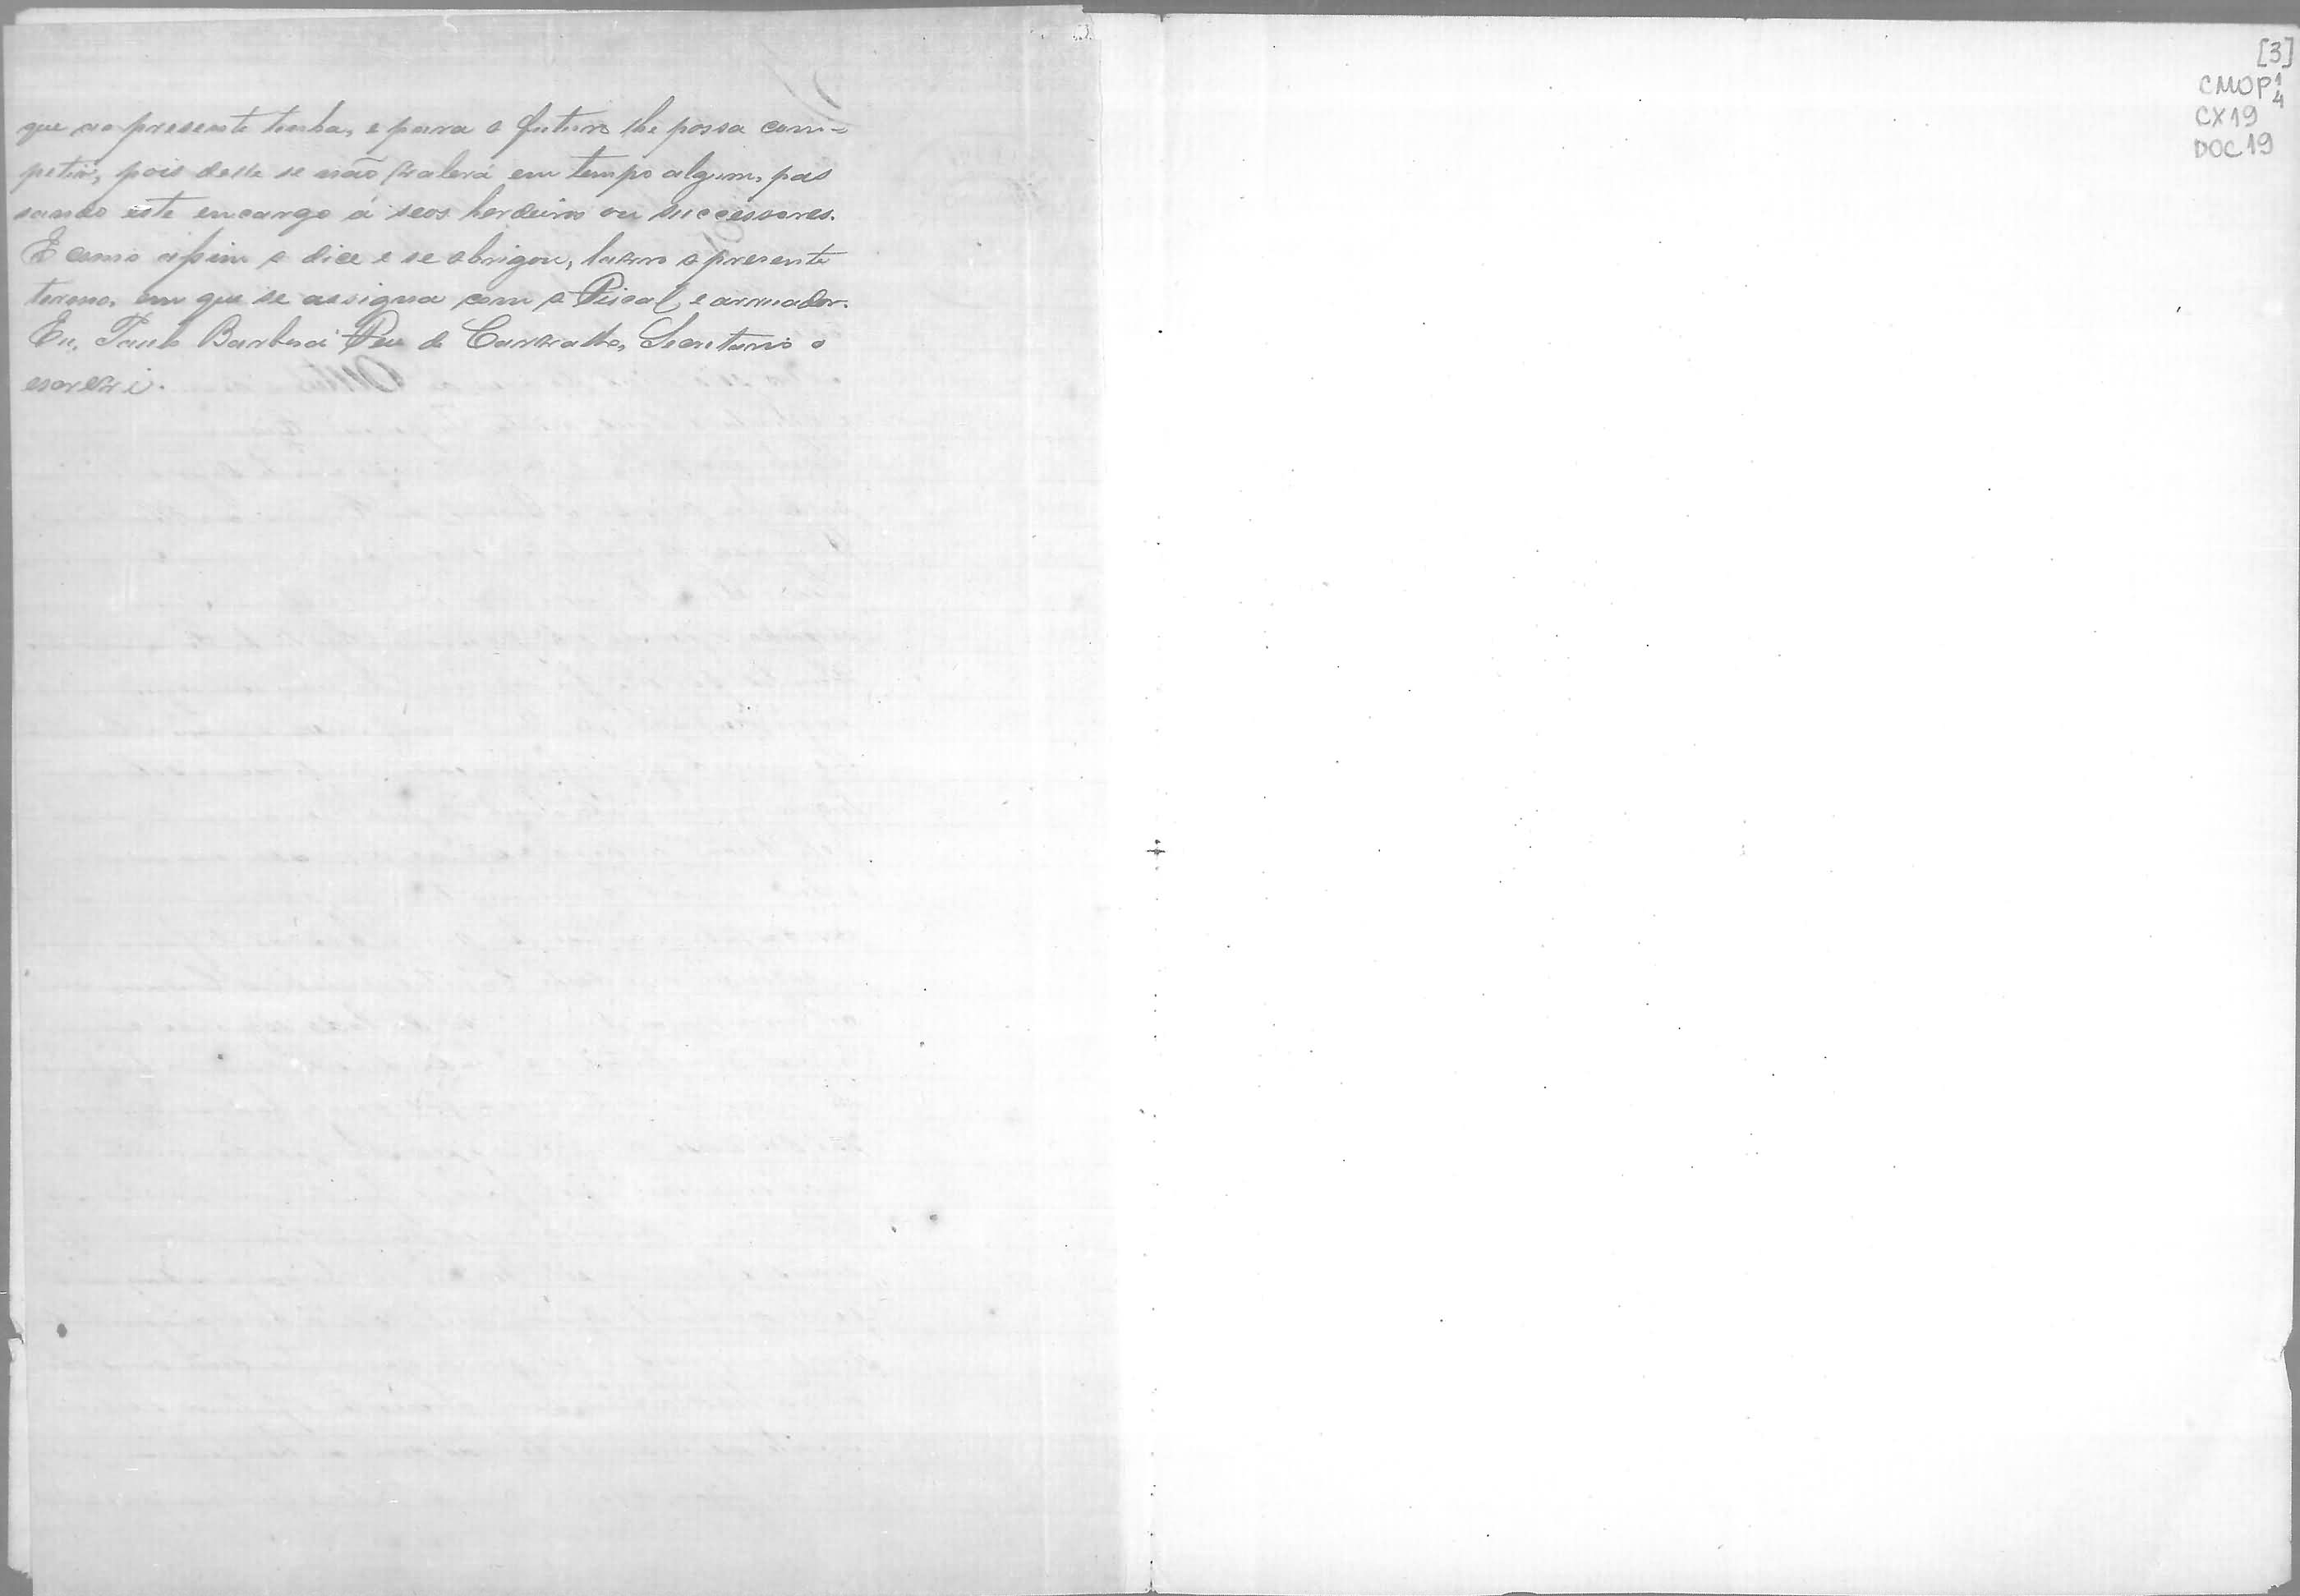 que no presente tenha, e para o futuro lhe possa com=
petir, pois delle se não valerá em tempo algum, pas
sando este encargo á seos herdeiros ou successores.
E como assim o dice e se obrigou, lavro o presente
termo, em que se assigna com o Fiscal e arruador.
Eu, Paulo Barbosa de Carvalho, Secretario o
escrevi.
[3]
CMOP 1/4
CX19
DOC 19